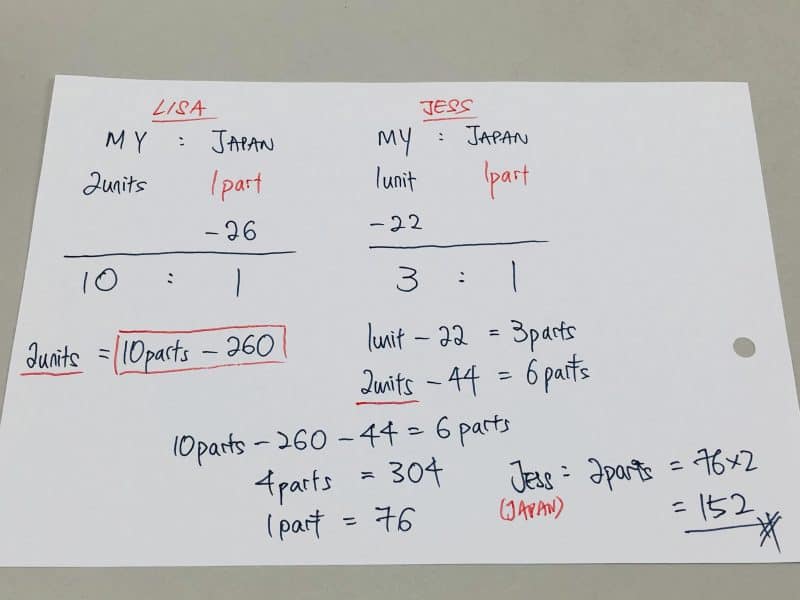 LISA
MY : JAPAN
2units 1part
-26
10 : 1
2units = 10parts - 260
JESS
MY : JAPAN
1unit 1part
-22
3 : 1
1unit - 22 = 3parts
2units - 44 = 6parts
10parts - 260 - 44 = 6parts
4parts = 304
1part = 76
Jess = 2parts = 76×2
(JAPAN)
= 152